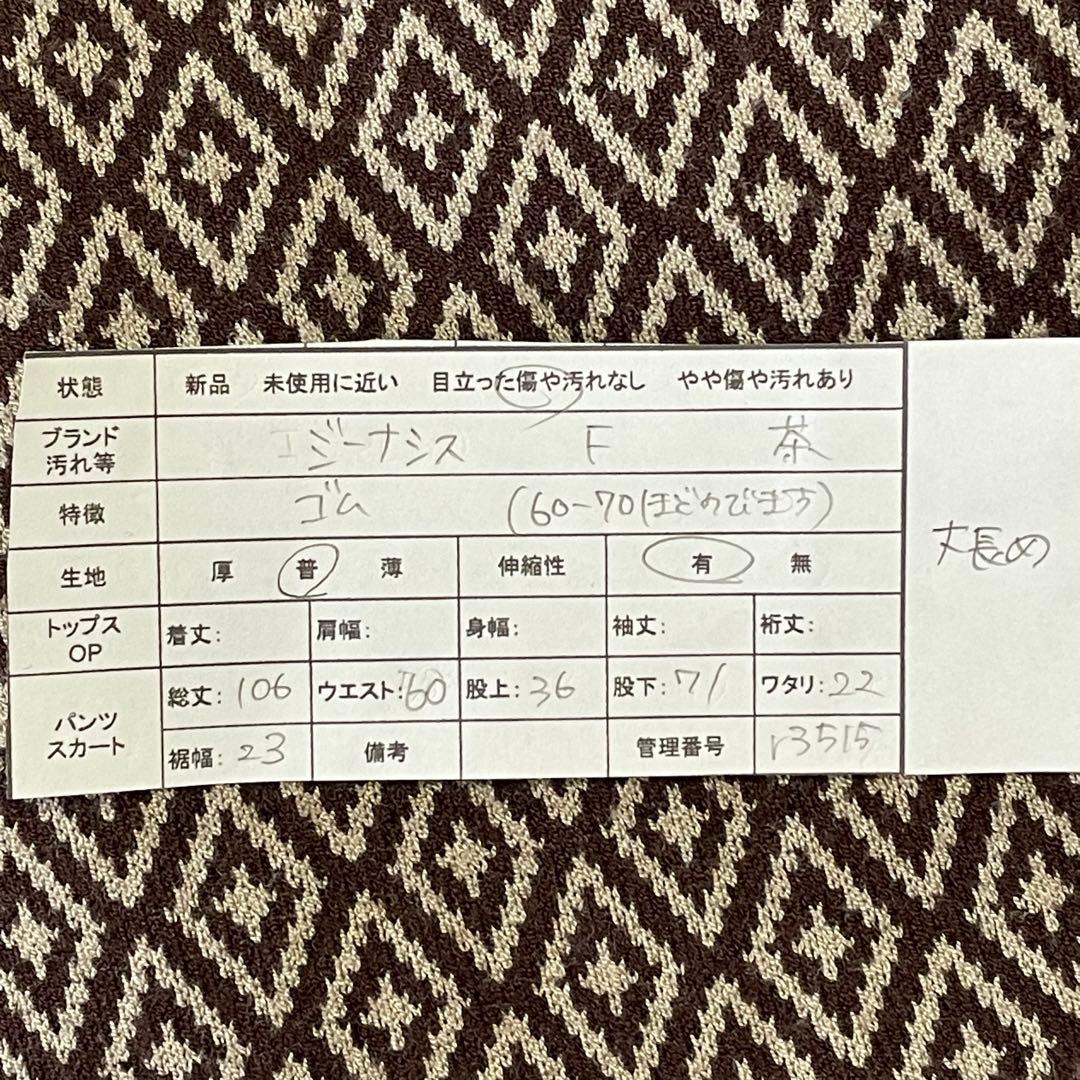 状態 新品 未使用に近い 目立った傷や汚れなし やや傷や汚れあり
ブランド 汚れ等 エジーナシス F 茶
特徴 ゴム (60-70ほどのびます)
生地 厚 普 薄 伸縮性 有 無
丈長め
トップス OP 着丈: 肩幅: 身幅: 袖丈: 裄丈:
パンツ スカート 総丈:106 ウエスト:60 股上:36 股下:71 ワタリ:22
裾幅:23 備考 管理番号 r3515